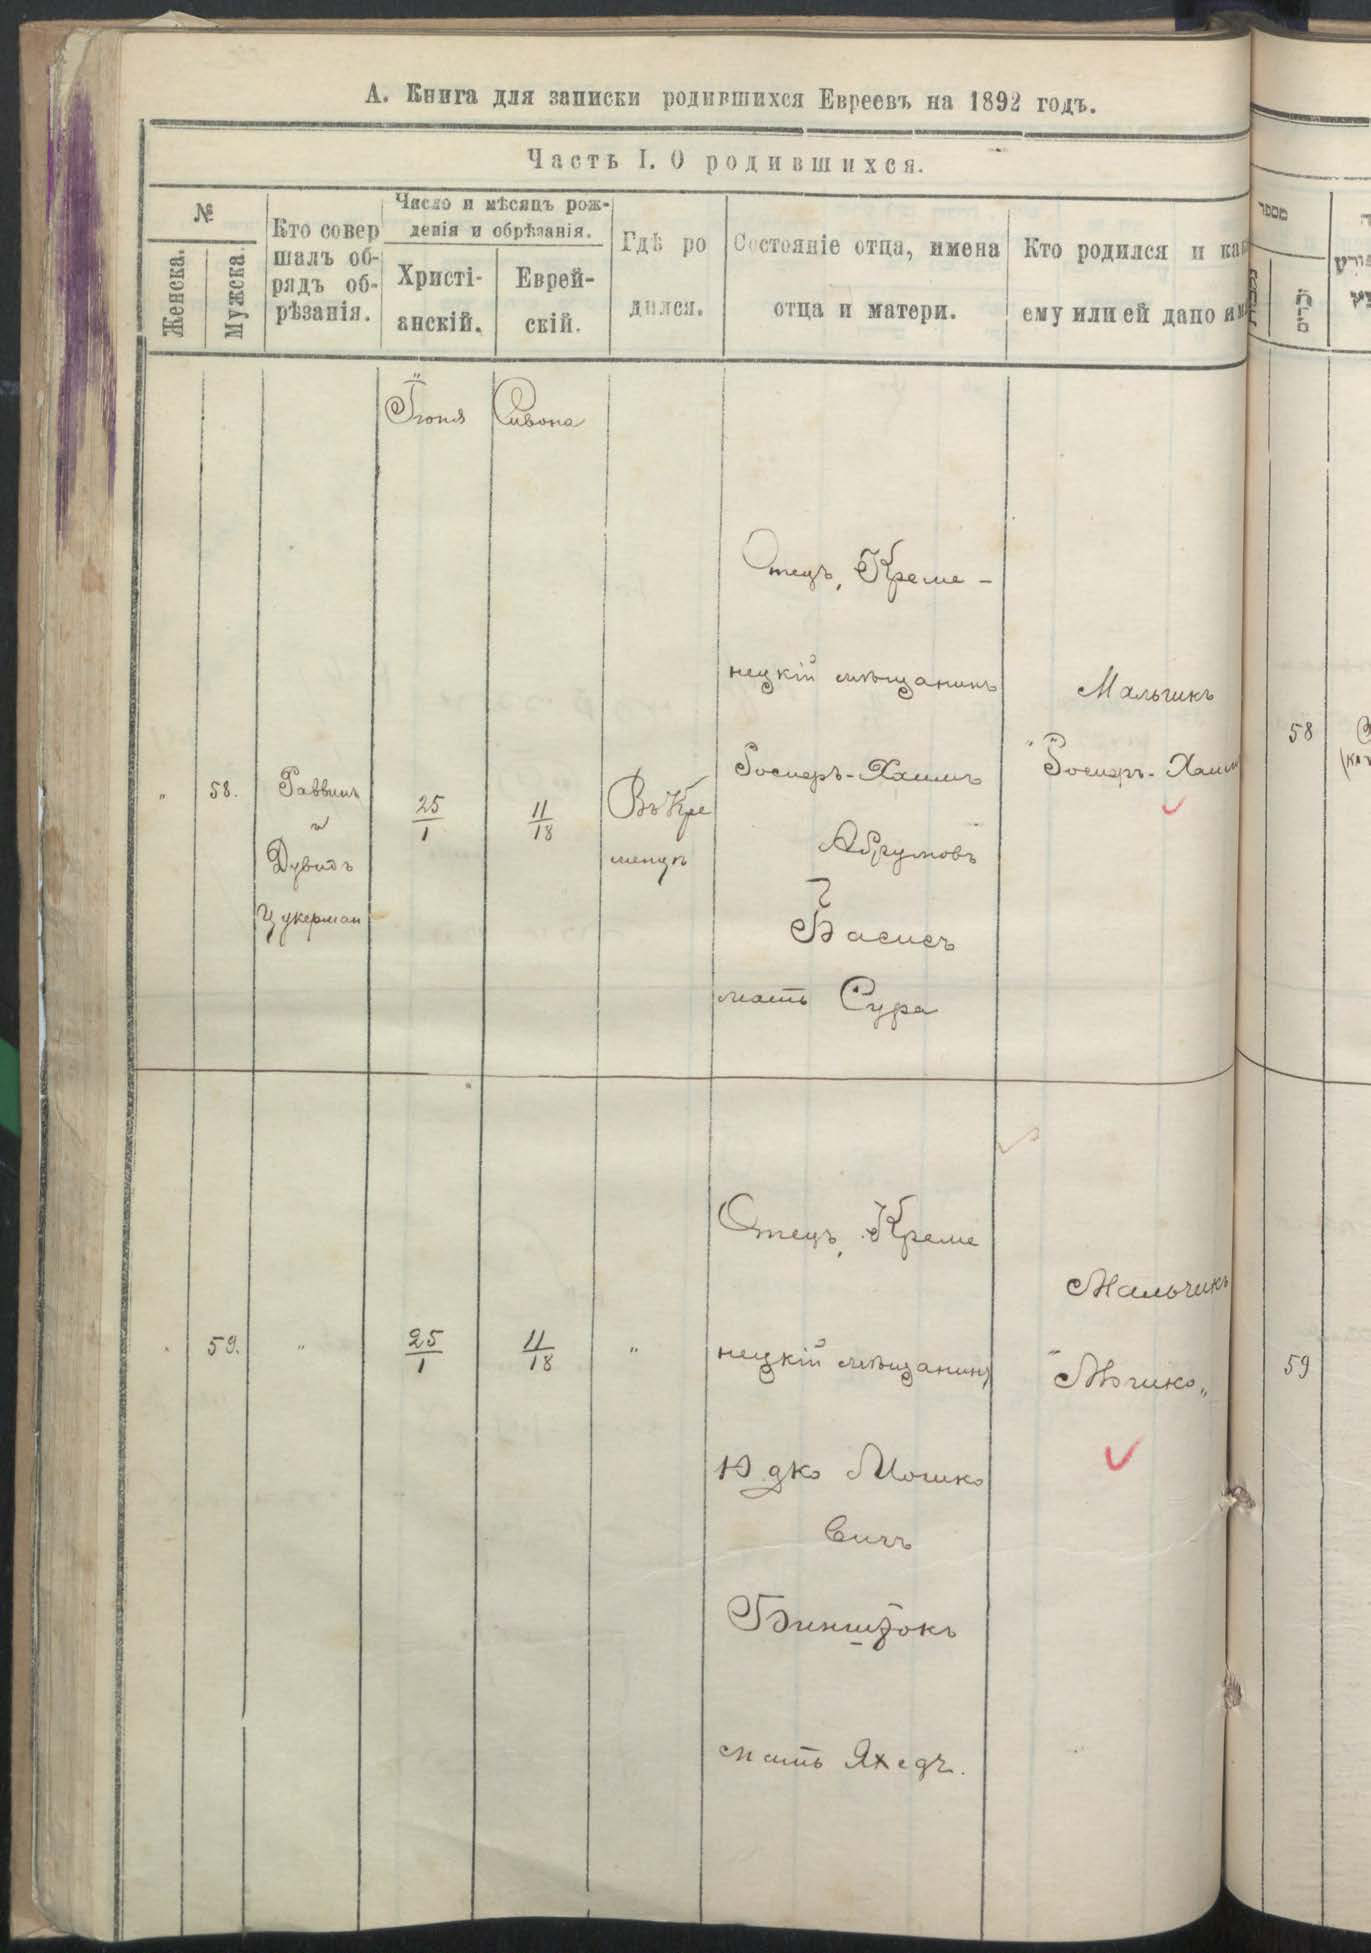 А. Книга для записки родившихся Евреевъ на 1892 годъ.
Часть I. О родившихся.
№
Женска.
Мужска.
Кто совер
шалъ об-
рядъ об-
рѣзанія.
Число и мѣсяцъ рож-
денія и обрѣзанія.
Христі-
анскій.
Еврей-
скій.
Гдѣ ро
дился.
Состояніе отца, имена
отца и матери.
Кто родился и как
ему или ей дано им
מספר
זכרים
Іюня
Сивона
"
58.
Раввинъ
и
Дувидъ
Цукерман
25
1
11
18
Въ Кре
менцѣ
Отецъ, Креме-
нецкій мѣщанинъ
Хаимъ
Абрумовъ
Басисъ
мать Сура
Мальчикъ
Хаим
58
59.
"
25
1
11
18
"
Отецъ, Креме
нецкій мѣщанинъ
Юдко Мошко
вичъ
Бинштокъ
мать Яхедъ.
Мальчикъ
59